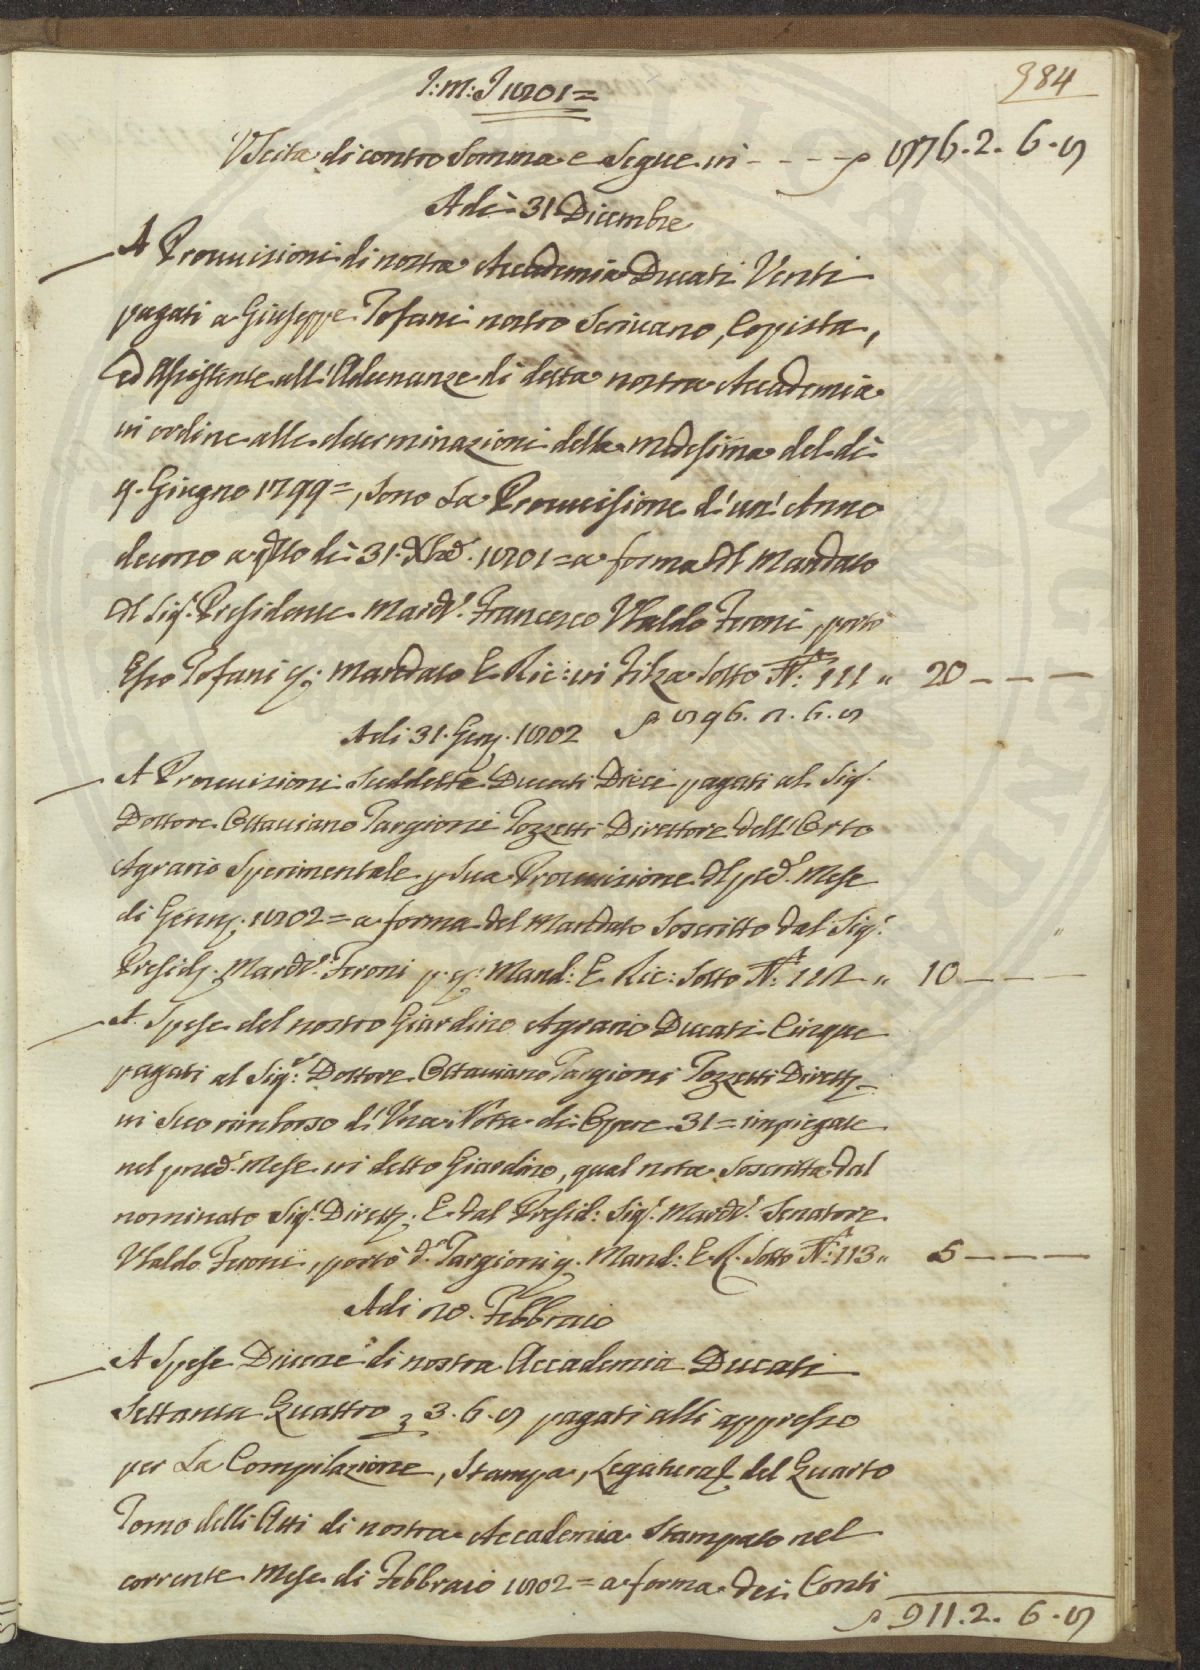 384
J: M: J 1801=
Uscita di contro Somma e Segue in - - - - 876. 2. 6. 8
Adì 31 Dicembre
A Provvisioni di nostra Accademia Ducati Venti
pagati a Giuseppe Tofani nostro Scrivano, Copista,
ed Assistente all'Adunanze di detta nostra Accademia
in ordine alle determinazioni della medesima del dì
9. Giugno 1799=, Sono La Provvisione d'un'Anno
decorso a qsto dì 31. Xbre. 1801= a forma del Mandato
del Sigr. Presidente March. Francesco Ubaldo Feroni, portò
Esso Tofani p: Mandato E Ric: in Filza Sotto N: 111 " 20 - - -
896. 2. 6. 8
Adì 31. Genn. 1802
A Provvisioni Suddette Ducati Dieci pagati al Sigr.
Dottore Ottaviano Targioni Tozzetti Direttore dell'Orto
Agrario Sperimentale p Sua Provvisione del pred. Mese
di Genn. 1802= a forma del Mandato Soscritto dal Sigr.
Presid. March. Feroni p. q: Mand: E Ric: Sotto N: 112 " 10 - - -
A Spese del nostro Giardino Agrario Ducati Cinque
pagati al Sigr. Dottore Ottaviano Targioni Tozzetti Dirett.
in Suo rimborso d'Una Nota di Opere 31= impiegate
nel pred. Mese in detto Giardino, qual nota Soscritta dal
nominato Sigr. Dirett. E dal Presid: Sigr. March. Senatore
Ubaldo Feroni, portò d. Targioni p. Mand: E R. Sotto N: 113 " 5 - - -
Adì 28. Febbraio
A Spese Diverse di nostra Accademia Ducati
Settanta Quattro 3. 6. 8 pagati alli appresso
per La Compilazione, Stampa, Legatura del Quarto
Tomo delli Atti di nostra Accademia Stampato nel
corrente Mese di Febbraio 1802= a forma dei Conti
911. 2. 6. 8